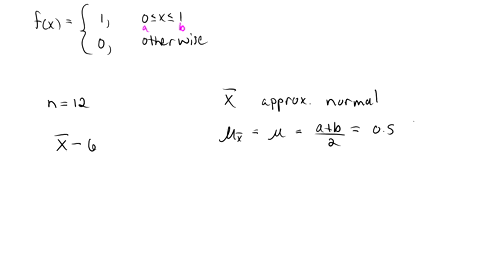 f(x) = { 1, 0 ≤ x ≤ 1
a b
0, otherwise
n = 12
X̄ approx. normal
X̄ - 6
μ_X̄ = μ = (a+b)/2 = 0.5